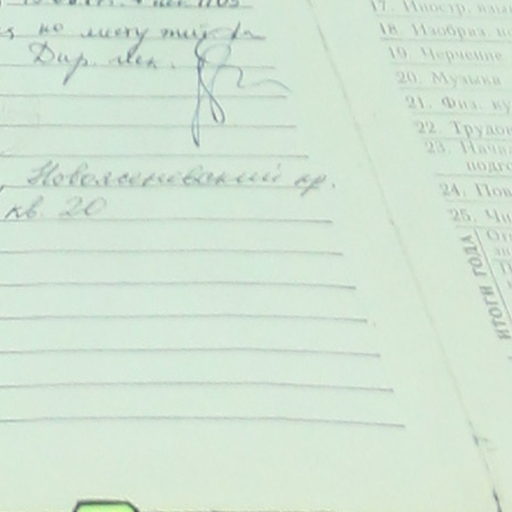 по месту жит
Дир. шк.
Новоясеневский пр.
кв. 20
17. Иностр. язык
18. Изобраз. ис
19. Черчение
20. Музыка
21. Физ. ку
22. Трудов
23. Начал
подго
24. Пов
25. Чи
ИТОГИ ГОДА